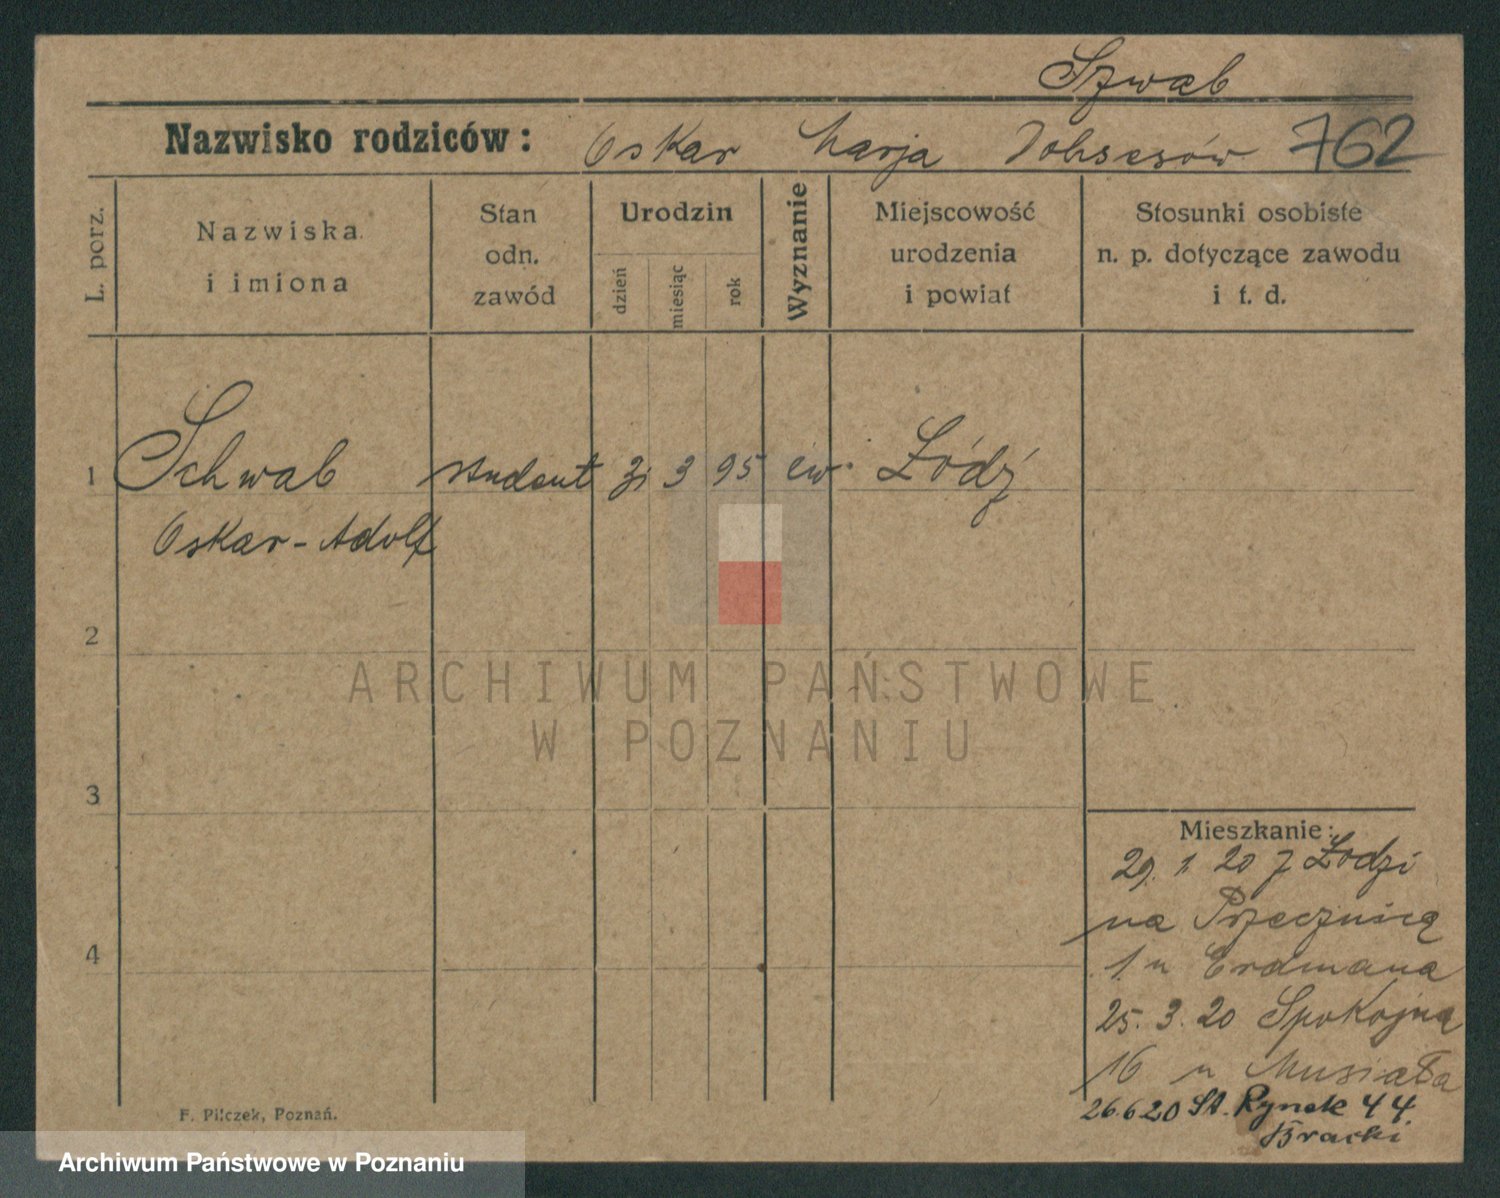 Szwab
Nazwisko rodziców: Oskar Marja 762
L. porz.
Nazwiska
i imiona
Stan
odn.
zawód
Urodzin
dzień
miesiąc
rok
Wyznanie
Miejscowość
urodzenia
i powiat
Stosunki osobiste
n. p. dotyczące zawodu
i t. d.
1 Schwab student 3 95 ew. Łódź
Oskar-Adolf
2
3
4
Mieszkanie:
29. 1. 20 z Łodzi
na Przecznicę
1. u Erdmana
25. 3. 20 Spokojna
16 u Musiała
26.6.20 St. Rynek 44
Bracki
F. Pilczek, Poznań.
ARCHIWUM PAŃSTWOWE
W POZNANIU
Archiwum Państwowe w Poznaniu